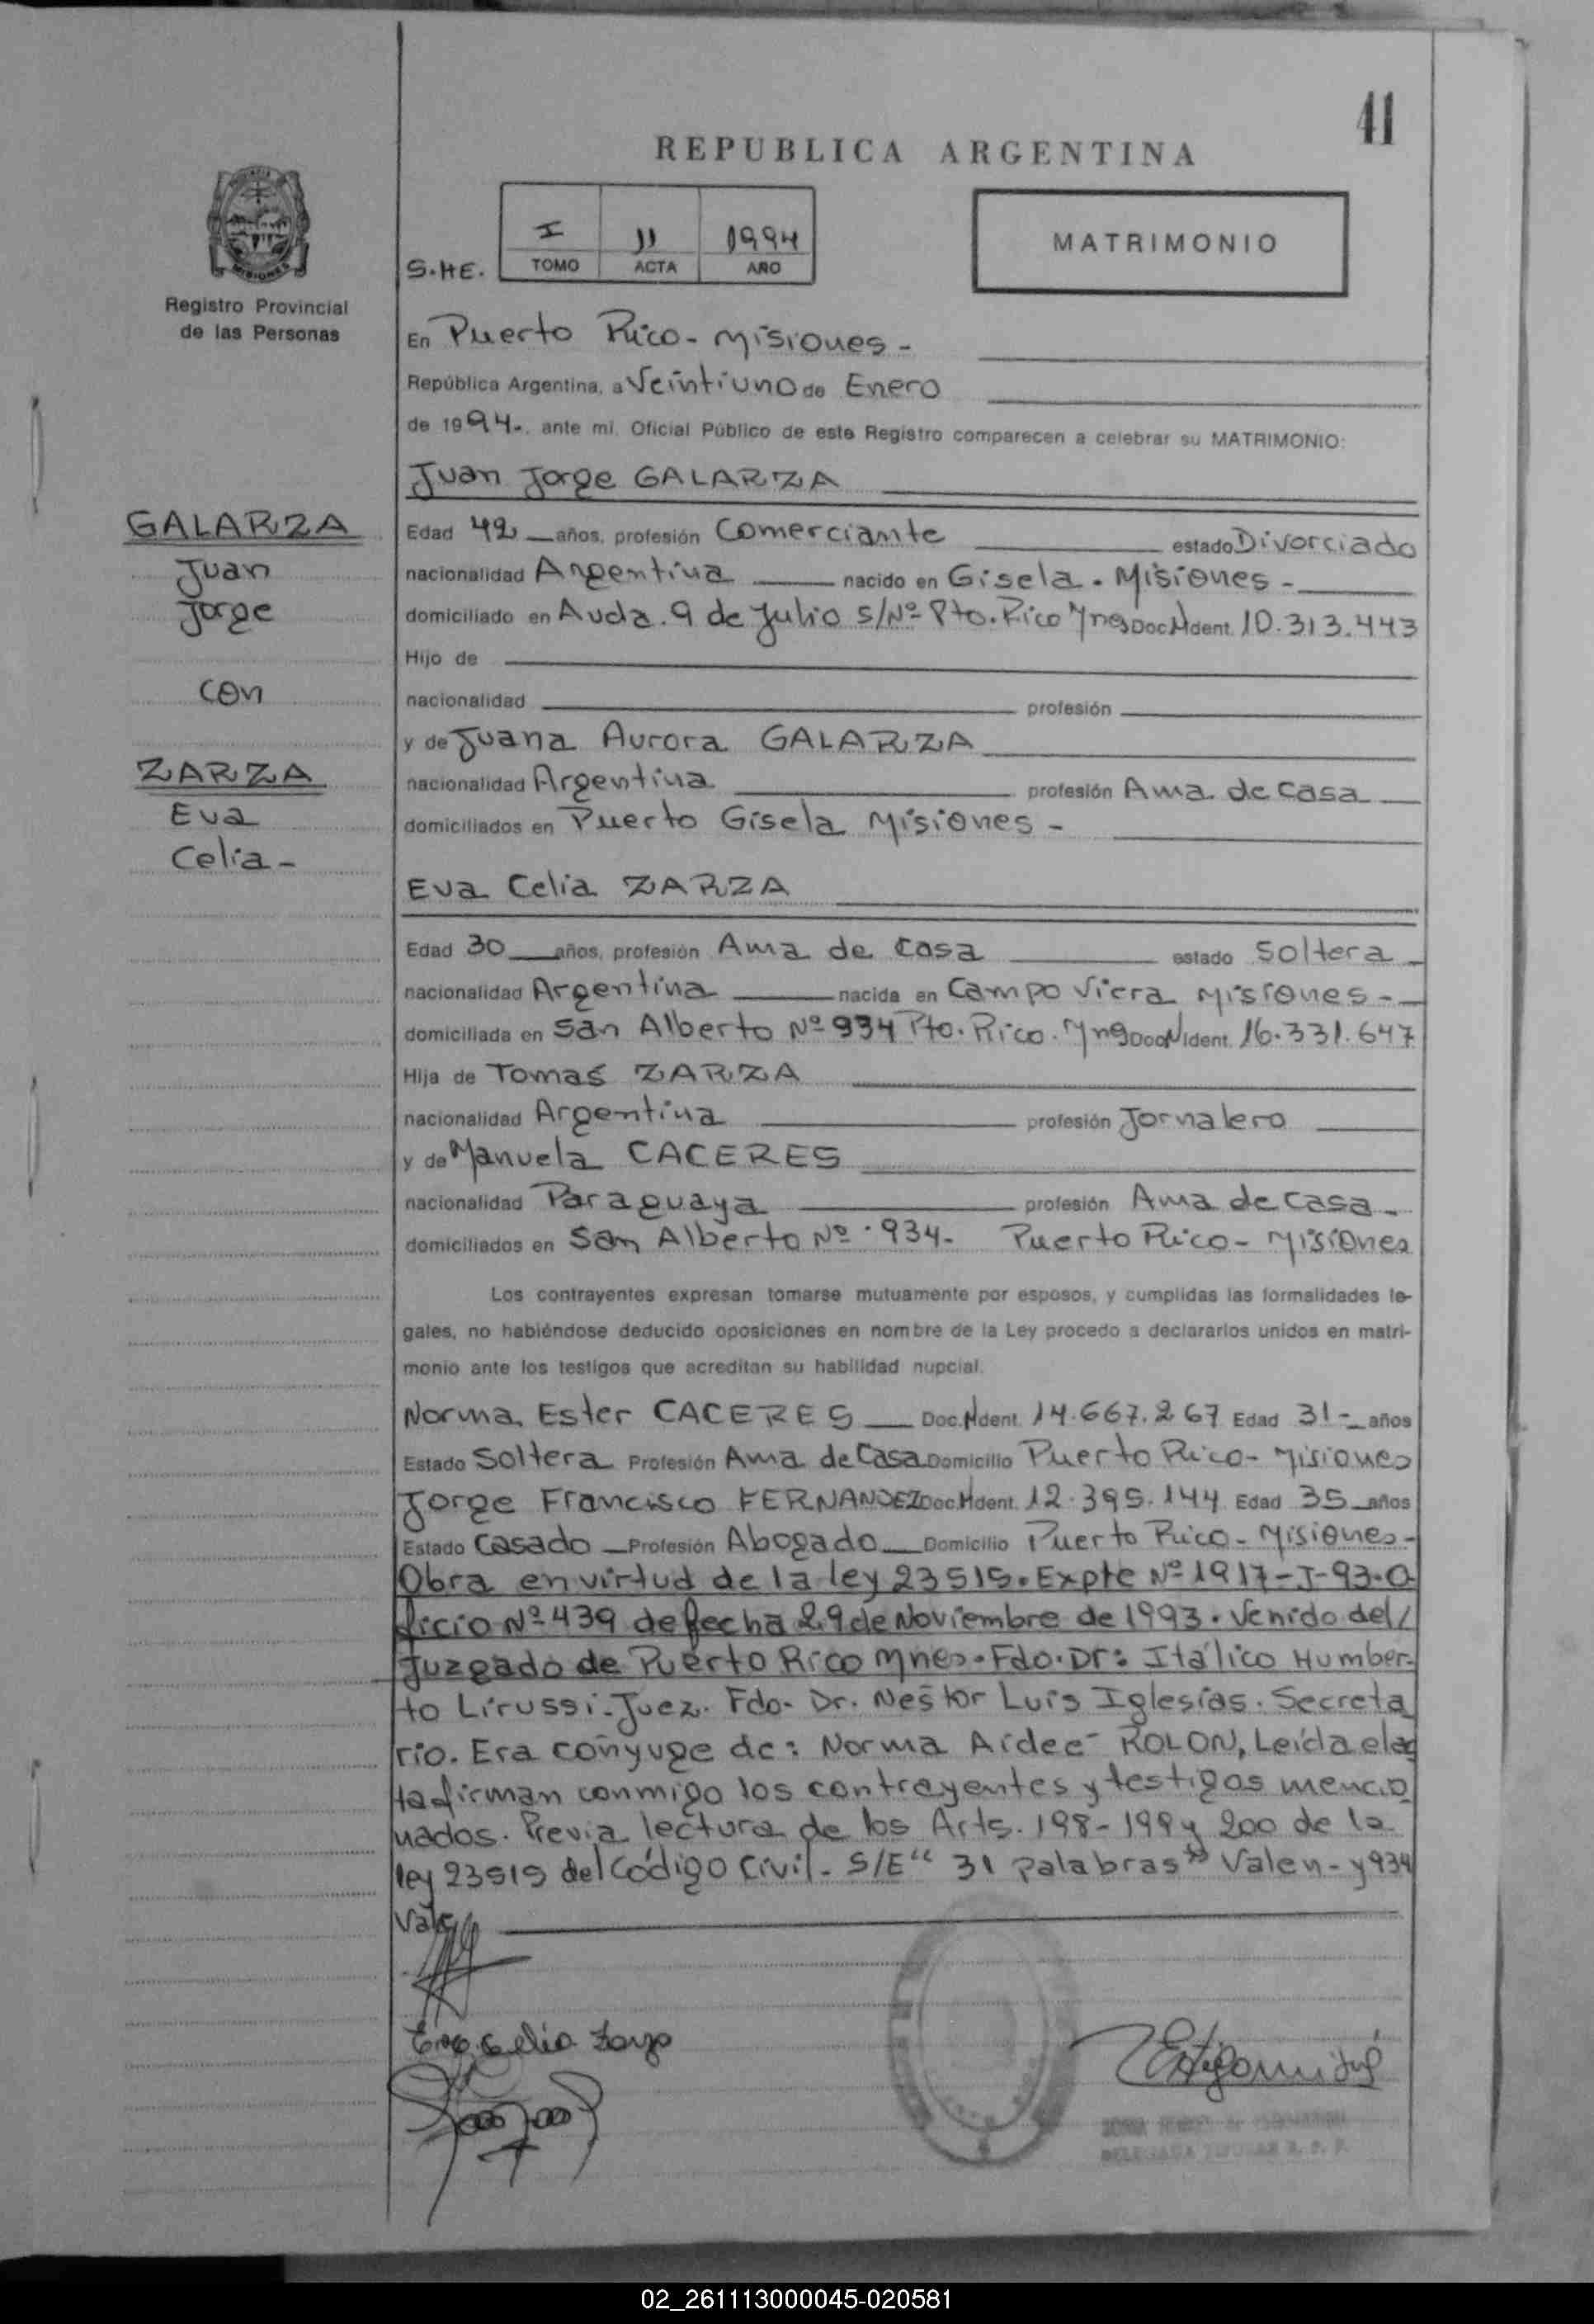 41
REPUBLICA ARGENTINA
I 11 1994
TOMO ACTA AÑO
S.HE.
MATRIMONIO
MISIONES
Registro Provincial
de las Personas
En Puerto Rico - Misiones -
República Argentina, a Veintiuno de Enero
de 1994-. ante mi, Oficial Público de este Registro comparecen a celebrar su MATRIMONIO:
Juan Jorge GALARZA
GALARZA
Juan
Jorge
con
ZARZA
Eva
Celia -
Edad 42 años, profesión Comerciante estado Divorciado
nacionalidad Argentina nacido en Gisela - Misiones -
domiciliado en Avda. 9 de Julio S/Nº Pto. Rico Mnes Doc. Ident. 10.313.443
Hijo de
nacionalidad profesión
y de Juana Aurora GALARZA
nacionalidad Argentina profesión Ama de Casa
domiciliados en Puerto Gisela Misiones -
Eva Celia ZARZA
Edad 30 años, profesión Ama de Casa estado Soltera
nacionalidad Argentina nacida en Campo Viera Misiones -
domiciliada en San Alberto Nº 934 Pto. Rico. Mnes Doc Ident. 16.331.647
Hija de Tomas ZARZA
nacionalidad Argentina profesión Jornalero
y de Manuela CACERES
nacionalidad Paraguaya profesión Ama de Casa -
domiciliados en San Alberto Nº 934 - Puerto Rico - Misiones
Los contrayentes expresan tomarse mutuamente por esposos, y cumplidas las formalidades le-
gales, no habiéndose deducido oposiciones en nombre de la Ley procedo a declararlos unidos en matri-
monio ante los testigos que acreditan su habilidad nupcial.
Norma Ester CACERES Doc. Ident. 14.667.267 Edad 31 - años
Estado Soltera Profesión Ama de Casa Domicilio Puerto Rico - Misiones
Jorge Francisco FERNANDEZ Doc. Ident. 12.395.144 Edad 35 años
Estado Casado Profesión Abogado Domicilio Puerto Rico - Misiones -
Obra en virtud de la ley 23515. Expte Nº 1917-I-93. O
ficio Nº 439 de fecha 29 de Noviembre de 1993. Venido del /
Juzgado de Puerto Rico Mnes. Fdo. Dr: Itálico Humber-
to Lirussi - Juez. Fdo - Dr. Nestor Luis Iglesias. Secreta
rio. Era conyuge de: Norma Aidee ROLON, Leída el ac
ta firman conmigo los contrayentes y testigos mencio
nados. Previa lectura de los Arts. 198 - 199 y 200 de la
ley 23515 del Código Civil - S/E " 31 palabras" Valen - y 934
Vale
Eva Celia Zarza
02_261113000045-020581